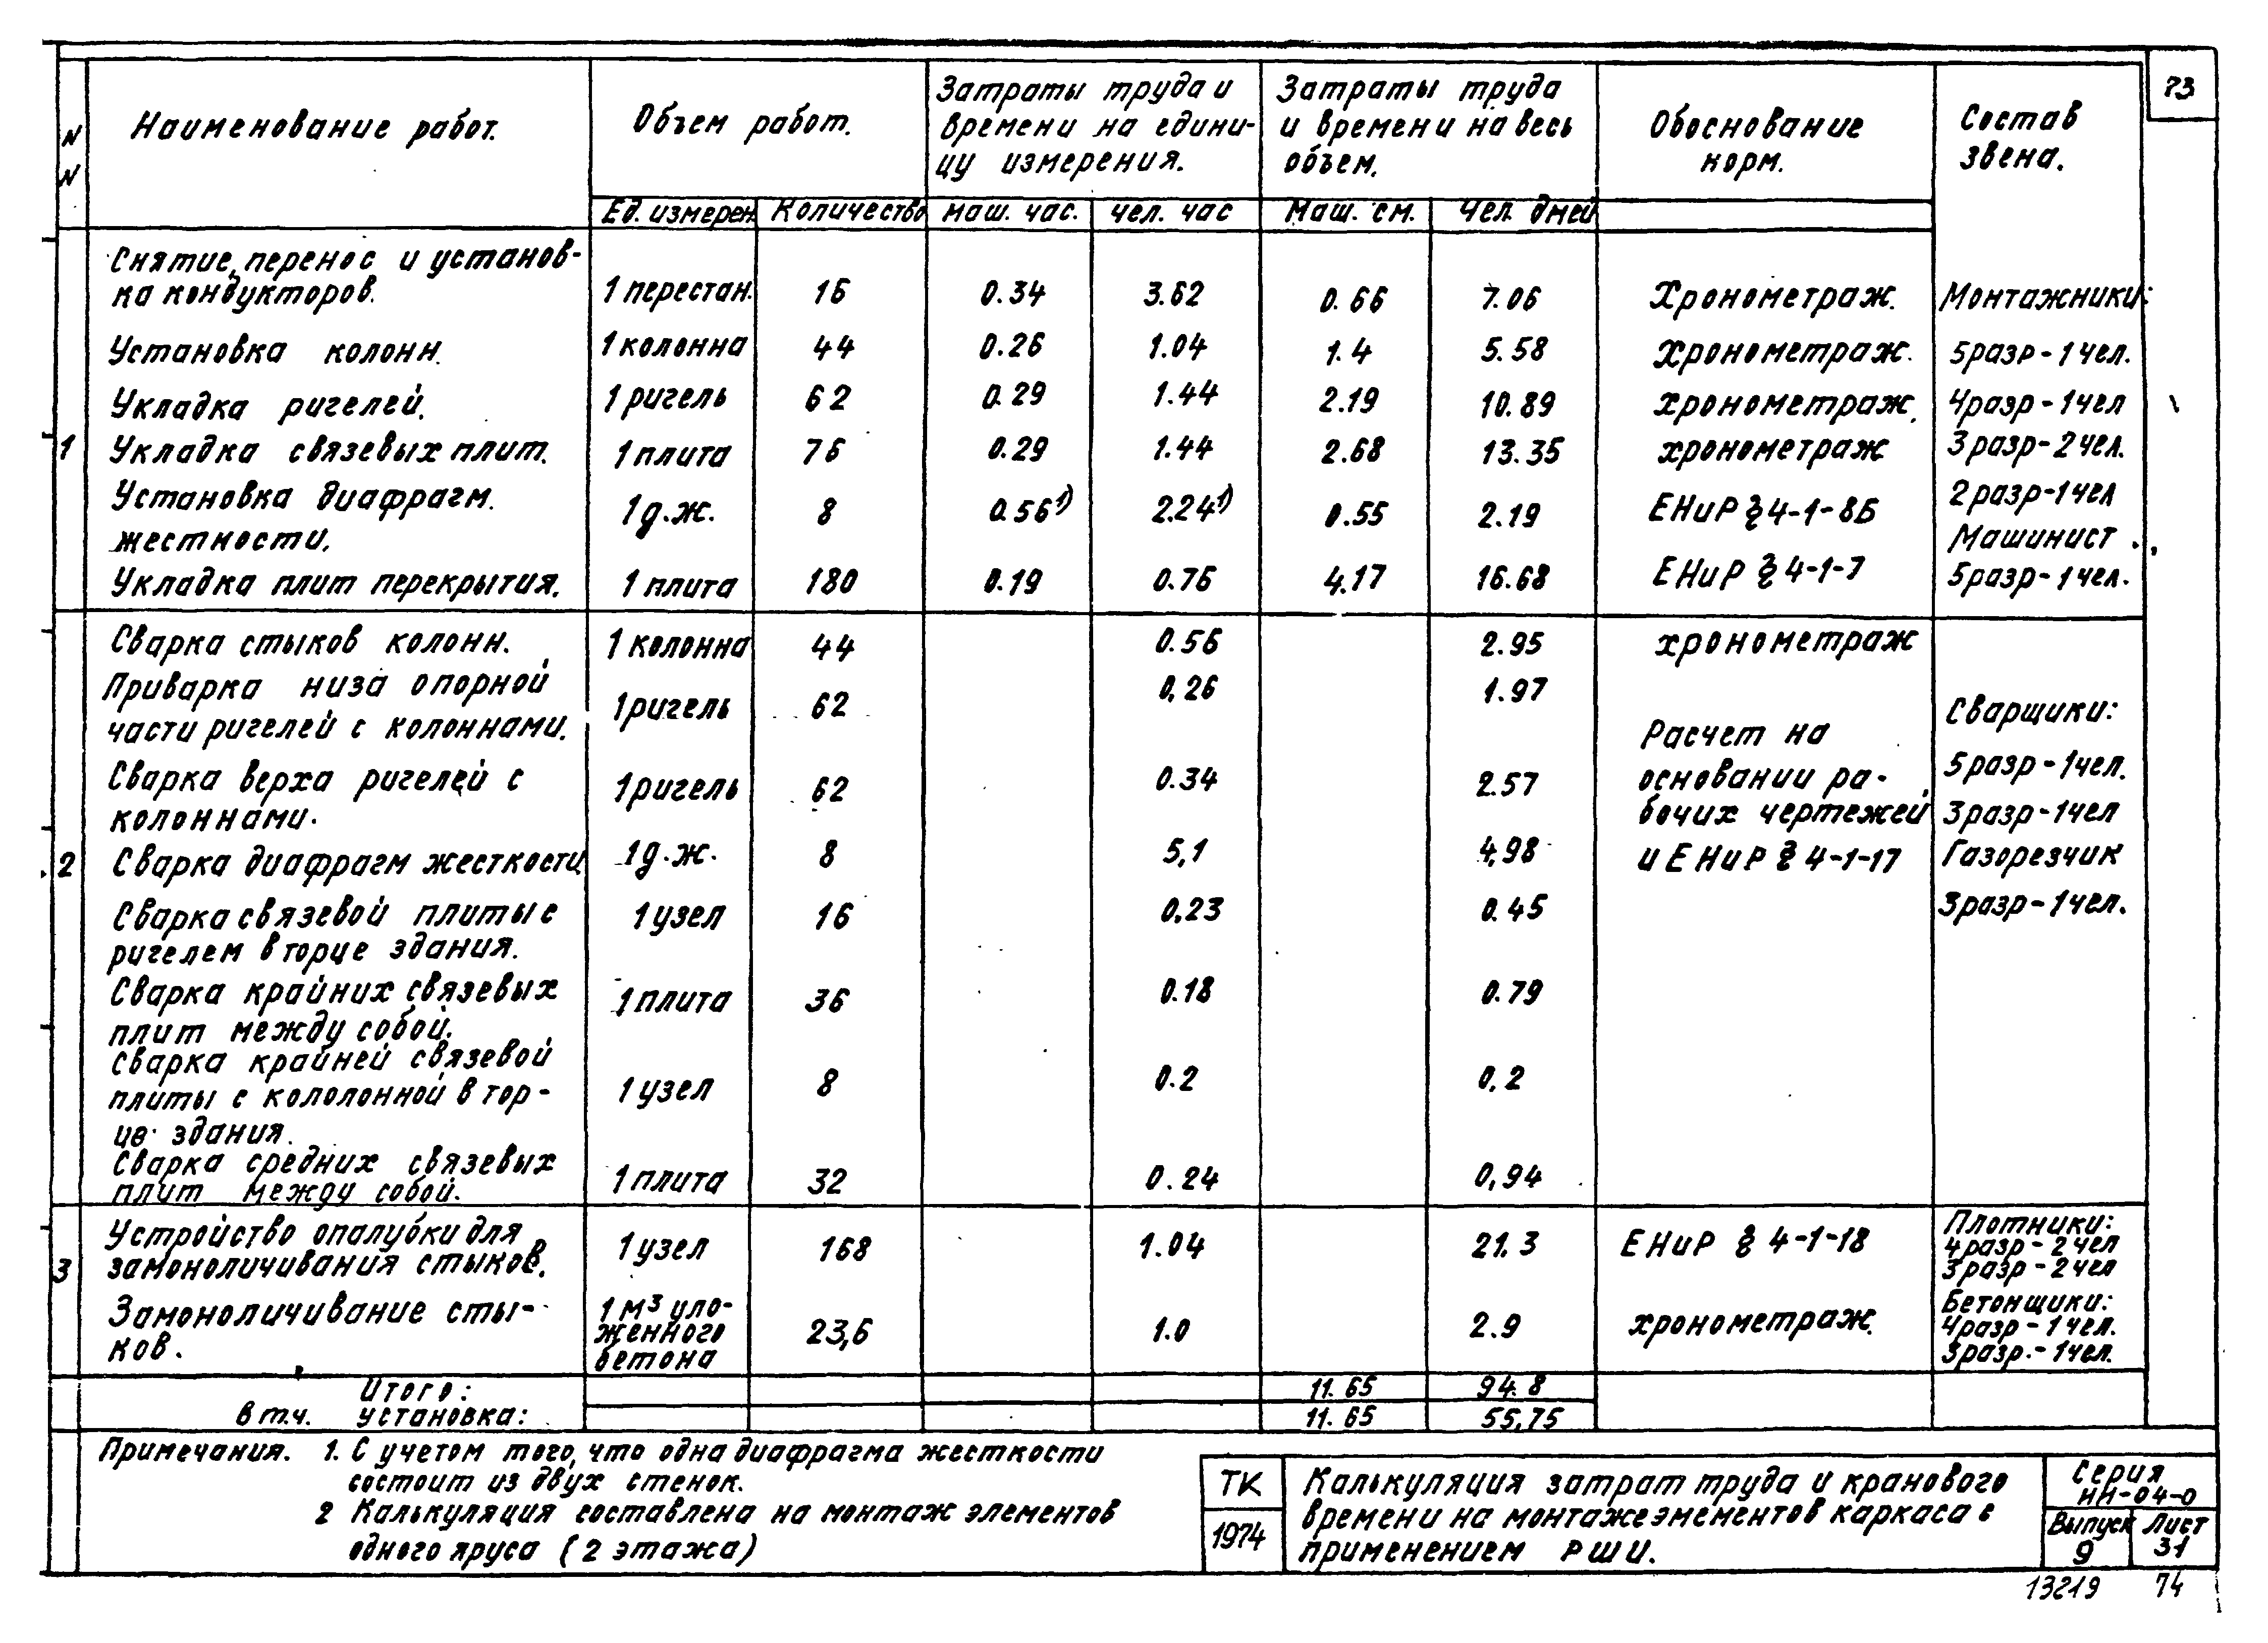 73
N
N
Наименование работ.
Объем работ.
Затраты труда и
времени на едини-
цу измерения.
Затраты труда
и времени на весь
объем.
Обоснование
норм.
Состав
звена.
Ед. измерен. Количество маш. час. чел. час Маш. см. Чел. дней
1
Снятие, перенос и установ-
ка кондукторов. 1 перестан. 16 0.34 3.62 0.66 7.06 Хронометраж. Монтажники:
Установка колонн. 1 колонна 44 0.26 1.04 1.4 5.58 хронометраж. 5разр-1чел.
Укладка ригелей. 1 ригель 62 0.29 1.44 2.19 10.89 хронометраж. 4разр-1чел
Укладка связевых плит. 1 плита 76 0.29 1.44 2.68 13.35 хронометраж 3разр-2чел.
Установка диафрагм.
жестности. 1 д.ж. 8 0.56¹⁾ 2.24¹⁾ 0.55 2.19 ЕНиР § 4-1-8Б 2разр-1чел
Машинист
Укладка плит перекрытия. 1 плита 180 0.19 0.76 4.17 16.68 ЕНиР § 4-1-7 5разр-1чел.
2
Сварка стыков колонн. 1 колонна 44 0.56 2.95 хронометраж
Приварка низа опорной
части ригелей с колоннами. 1ригель 62 0,26 1.97
Сварка верха ригелей с
колоннами. 1ригель 62 0.34 2.57
Сварка диафрагм жесткости 1д.ж. 8 5,1 4,98
Сварка связевой плиты с
ригелем в торце здания. 1 узел 16 0,23 0.45
Сварка крайних связевых
плит между собой. 1 плита 36 0.18 0.79
Сварка крайней связевой
плиты с кололонной в тор-
це здания. 1 узел 8 0.2 0.2
Сварка средних связевых
плит между собой. 1 плита 32 0.24 0,94
Расчет на
основании ра-
бочих чертежей
и ЕНиР § 4-1-17
Сварщики:
5разр-1чел.
3разр-1чел
Газорезчик
3разр-1чел.
3
Устройство опалубки для
замоноличивания стыков. 1 узел 168 1.04 21.3 ЕНиР § 4-1-18
Плотники:
4разр-2чел
3разр-2чел
Замоноличивание сты-
ков.
1 м³ уло-
женного
бетона
23,6 1.0 2.9 хронометраж.
Бетонщики:
4разр-1чел.
3разр.-1чел.
Итого: 11.65 94.8
в т.ч. установка: 11.65 55,75
Примечания. 1. С учетом того, что одна диафрагма жесткости
состоит из двух стенок.
2 Калькуляция составлена на монтаж элементов
одного яруса (2 этажа)
ТК
1974
Калькуляция затрат труда и кранового
времени на монтаже элементов каркаса с
применением РШИ.
Серия
ИИ-04-0
Выпуск
9
Лист
31
13219 74